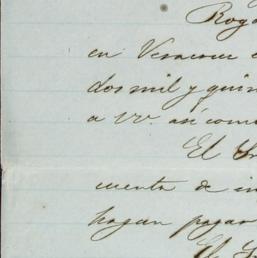 Roga
en Veracruz
dos mil y quin
a VV. asi como
El Sr
cuenta de in
hagan pagar
El S